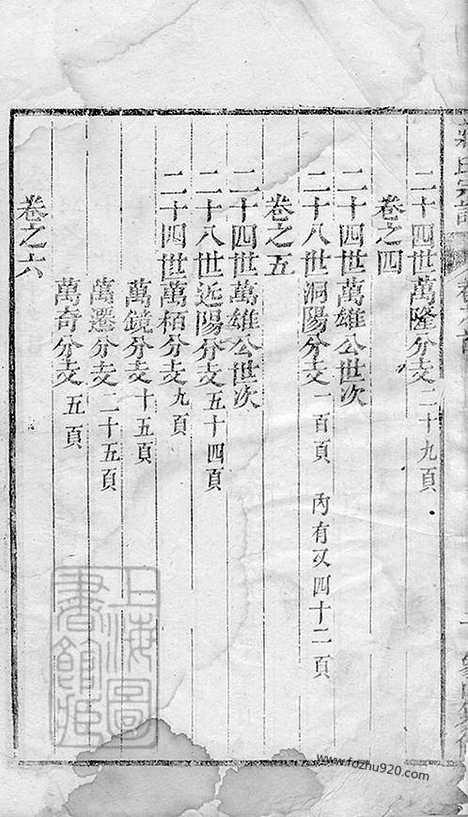 二十四世萬隆分支二十九頁
卷之四
二十四世萬雄公世次
二十八世洞陽分支一百頁 內有又四十二頁
卷之五
二十四世萬雄公世次
二十八世远陽分支五十四頁
二十四世萬栢分支九頁
萬鏡分支十五頁
萬遷分支二十五頁
萬奇分支五頁
卷之六
上海圖書館藏
www.fozhu920.com